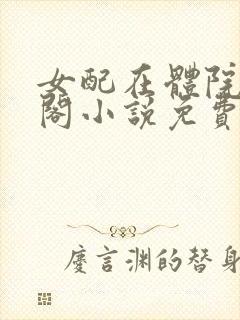 女配在體院
閣小説免費
慶言渊的替身